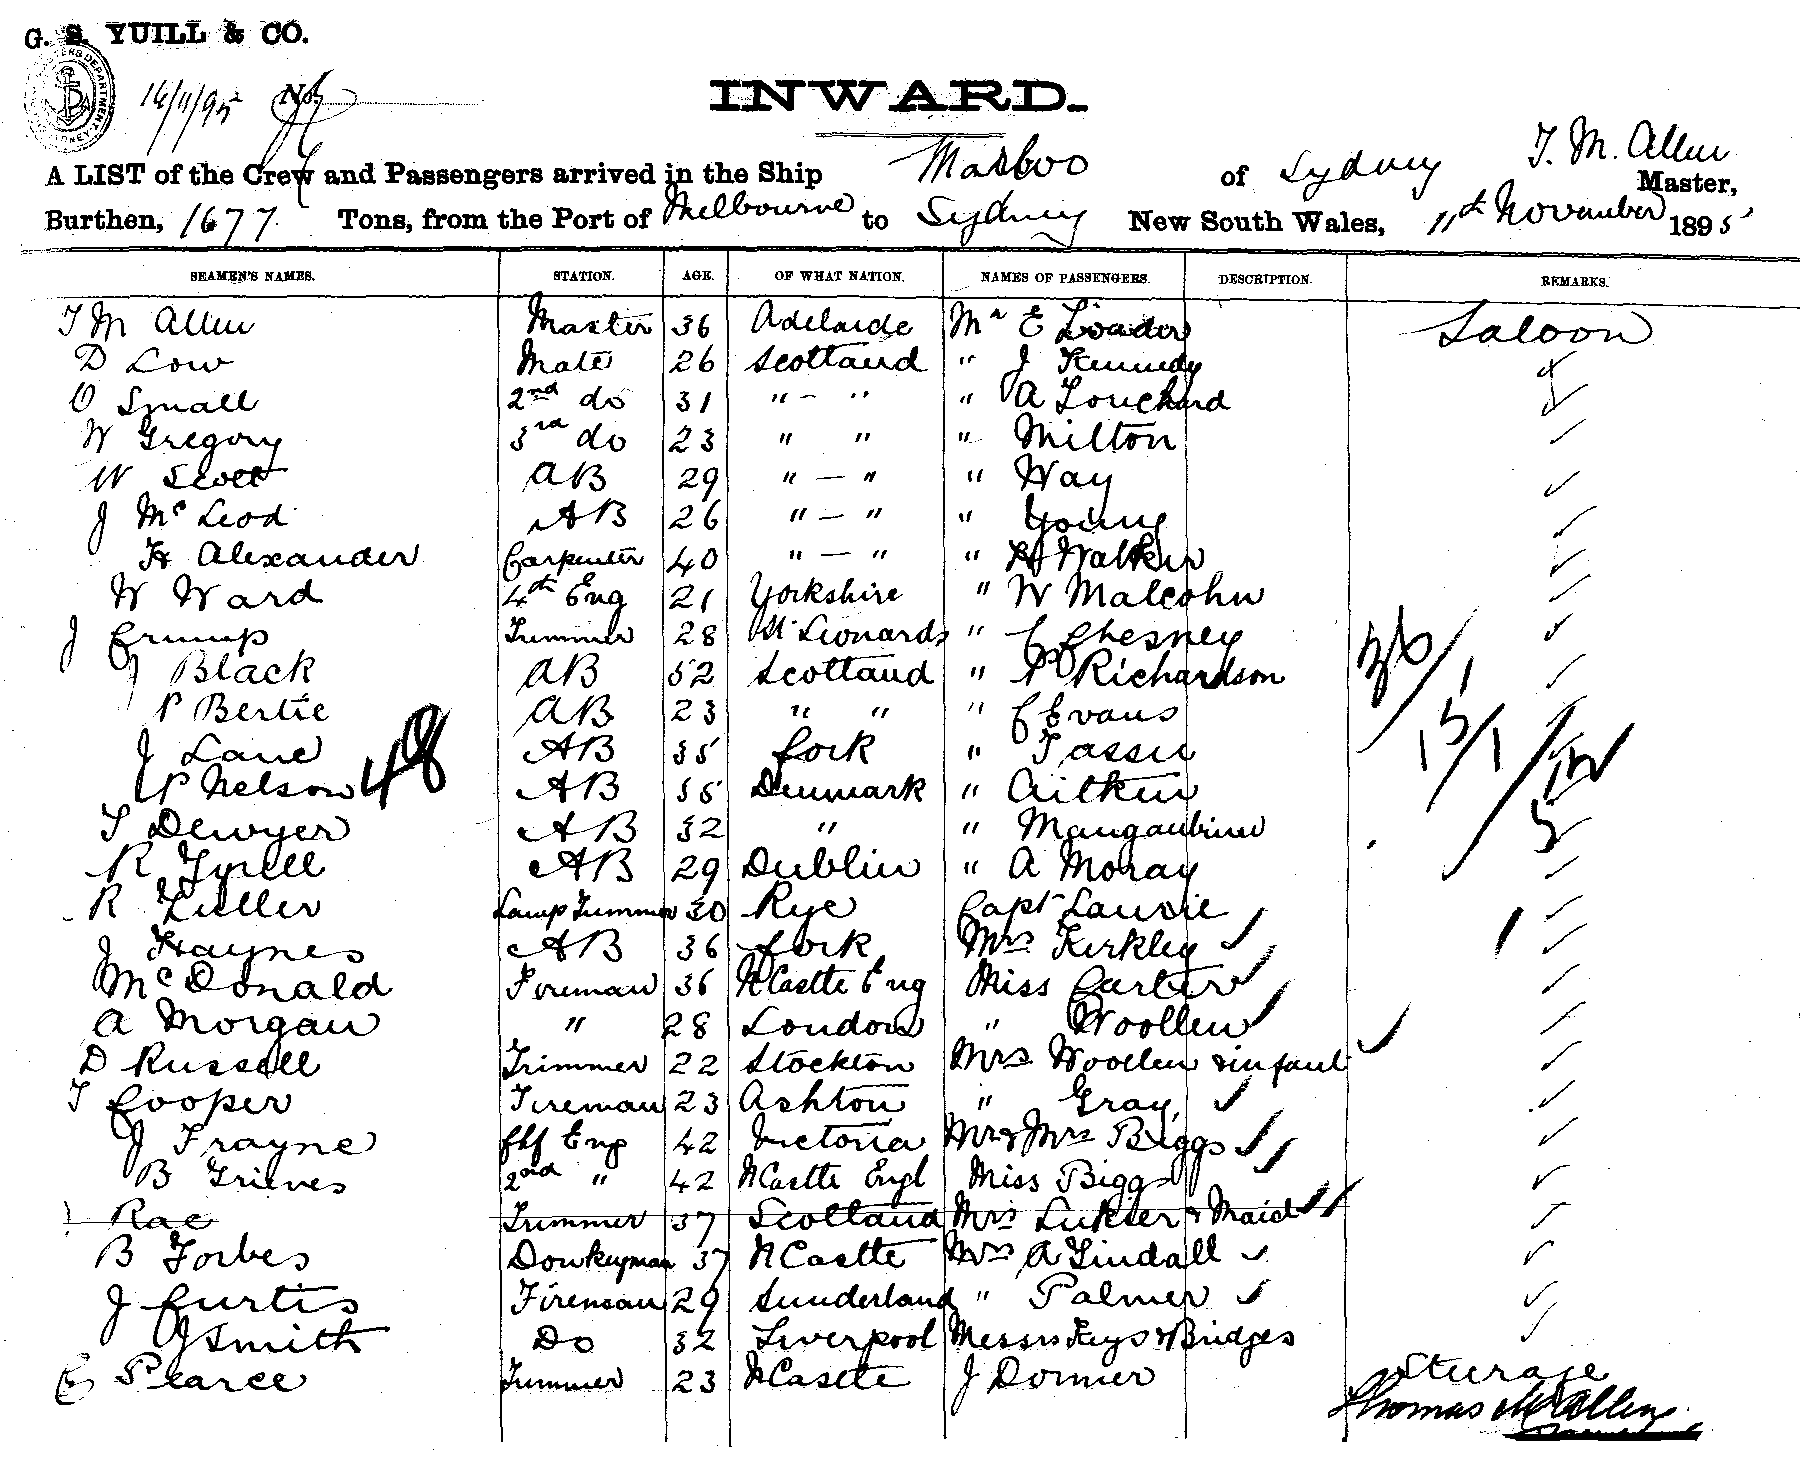 G. S. YUILL & CO.
14/11/95 No.
INWARD.
A LIST of the Crew and Passengers arrived in the Ship of Sydney T. M. Allen Master,
Burthen, 1677 Tons, from the Port of Melbourne to Sydney New South Wales, 11th November 1895
SEAMEN'S NAMES. STATION. AGE. OF WHAT NATION. NAMES OF PASSENGERS. DESCRIPTION. REMARKS.
T M Allen Master 36 Adelaide Mr E Loader Saloon
D Low Mate 26 Scotland " J Kennedy
O Small 2nd do 31 " - " " A Louchard
W Gregory 3rd do 23 " " " Milton
W Scott AB 29 " — " " Way
J McLeod AB 26 " — " " Young
H Alexander Carpenter 40 " — " " H Walker
W Ward 4th Eng 21 Yorkshire " W Malcohn
J Crump Trimmer 28 St Leonards " C Chesney
J Black AB 52 Scotland " P Richardson
P Bertie AB 23 " " " C Evans
J Lane AB 35 Cork "
P Nelson 48 AB 35 Denmark " Aitken
T Dewyer AB 32 " "
R Tyrell AB 29 Dublin " A Moray
R Fuller Lamp Trimmer 30 Rye Capt Laurie
J Haynes AB 36 Cork Mrs Kirkley
McDonald Fireman 36 NCastle Eng Miss Carter
A Morgan " 28 London " Woollen
D Russell Trimmer 22 Stockton Mrs Woollen & infant
T Cooper Fireman 23 Ashton " Gray
J Frayne Chf Eng 42 Victoria Mr & Mrs Biggs
B Grieves 2nd " 42 NCastle Engl Miss Biggs
Rae Trimmer 37 Scotland Mrs & Maid
B Forbes Donkeyman 37 NCastle Mrs A Tindall
J Curtis Fireman 29 Sunderland " Palmer
J Smith Do 32 Liverpool Messrs Keys & Bridges
E Pearce Trimmer 23 NCastle J Dormer Steerage
Thomas M Allen